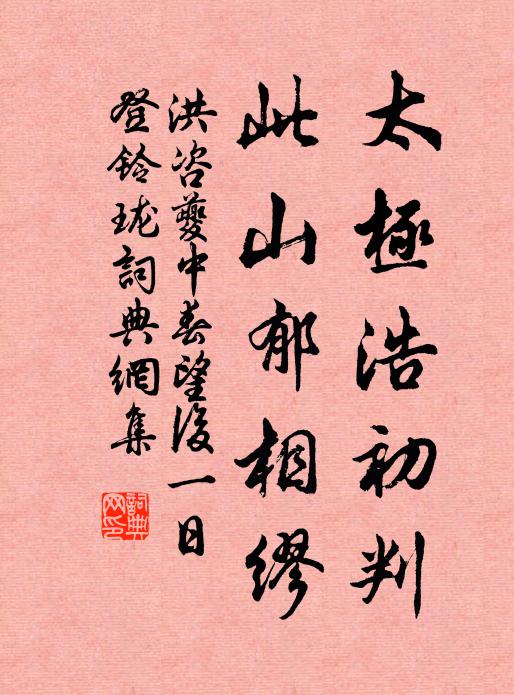 太極浩初判
此山郁相繆
洪咨夔中春望後一日
登鈴瓏詞典網集
詞典網印